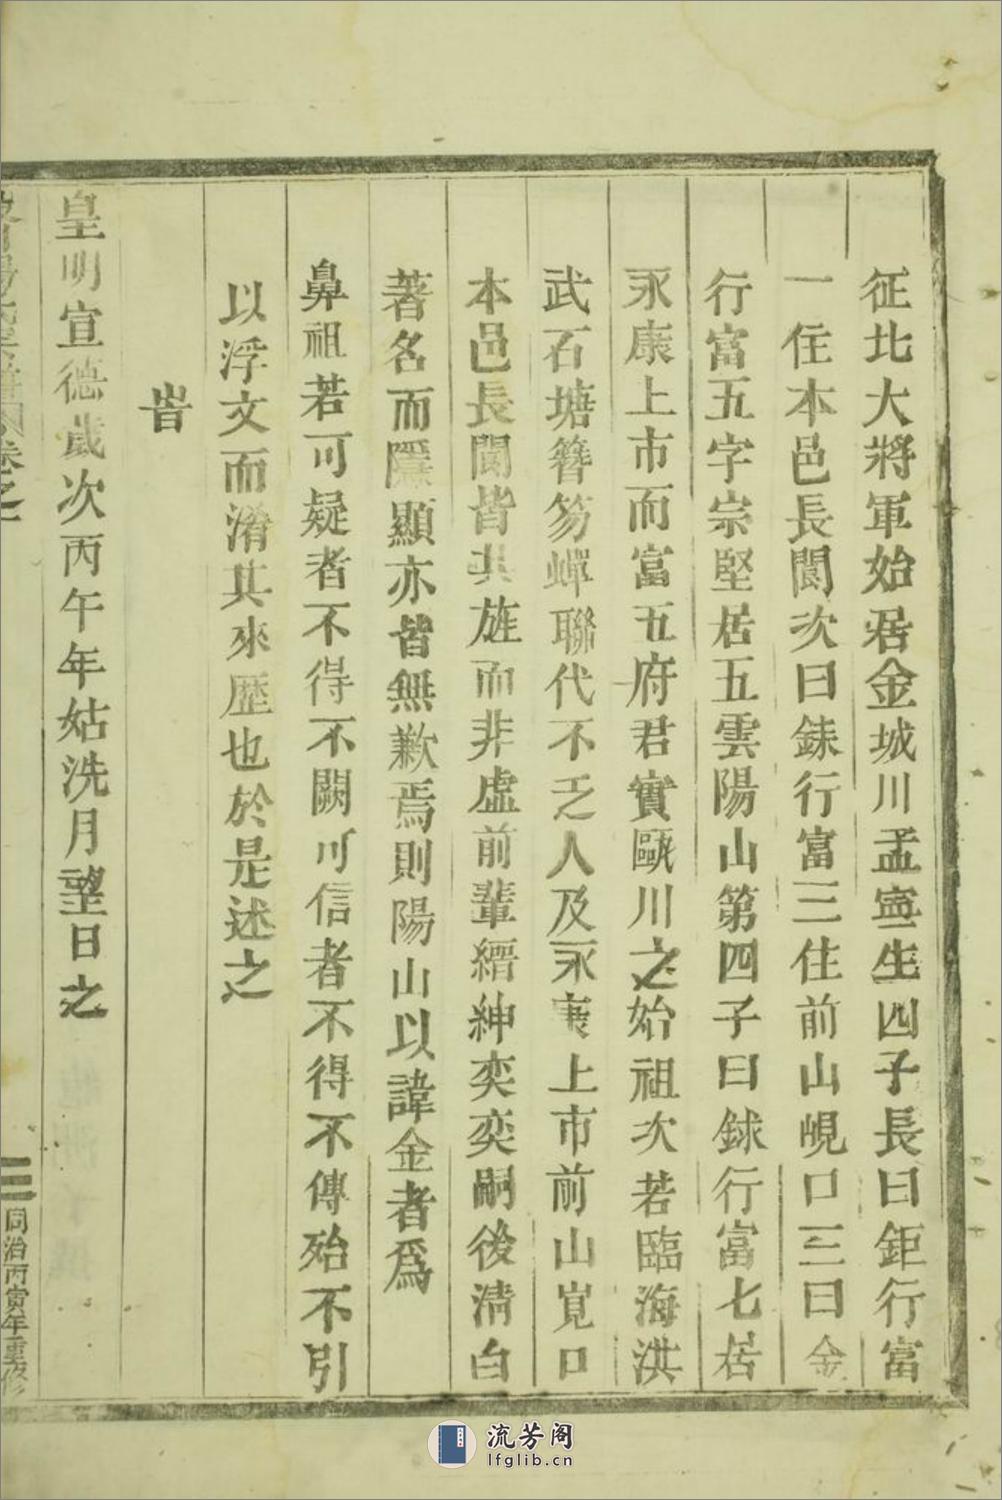 征北大將軍始居金城川孟寧生四子長曰鉅行富
一住本邑長閬次曰銇行富三住前山峴口三曰金
行富五字宗堅居五雲陽山第四子曰銶行富七居
永康上市而富五府君實甌川之始祖次若臨海洪
武石塘簪笏蟬聯代不乏人及永康上市前山覓口
本邑長閬皆其旌而非虛前輩縉紳奕奕嗣後淸白
著名而隱顯亦皆無歉焉則陽山以諱金者爲
鼻祖若可疑者不得不闕可信者不得不傳殆不引
以浮文而淆其來歷也於是述之
旹
皇明宣德歲次丙午年姑洗月望日之
卷之一
三
同治丙寅年重修
流芳阁
lfglib.cn